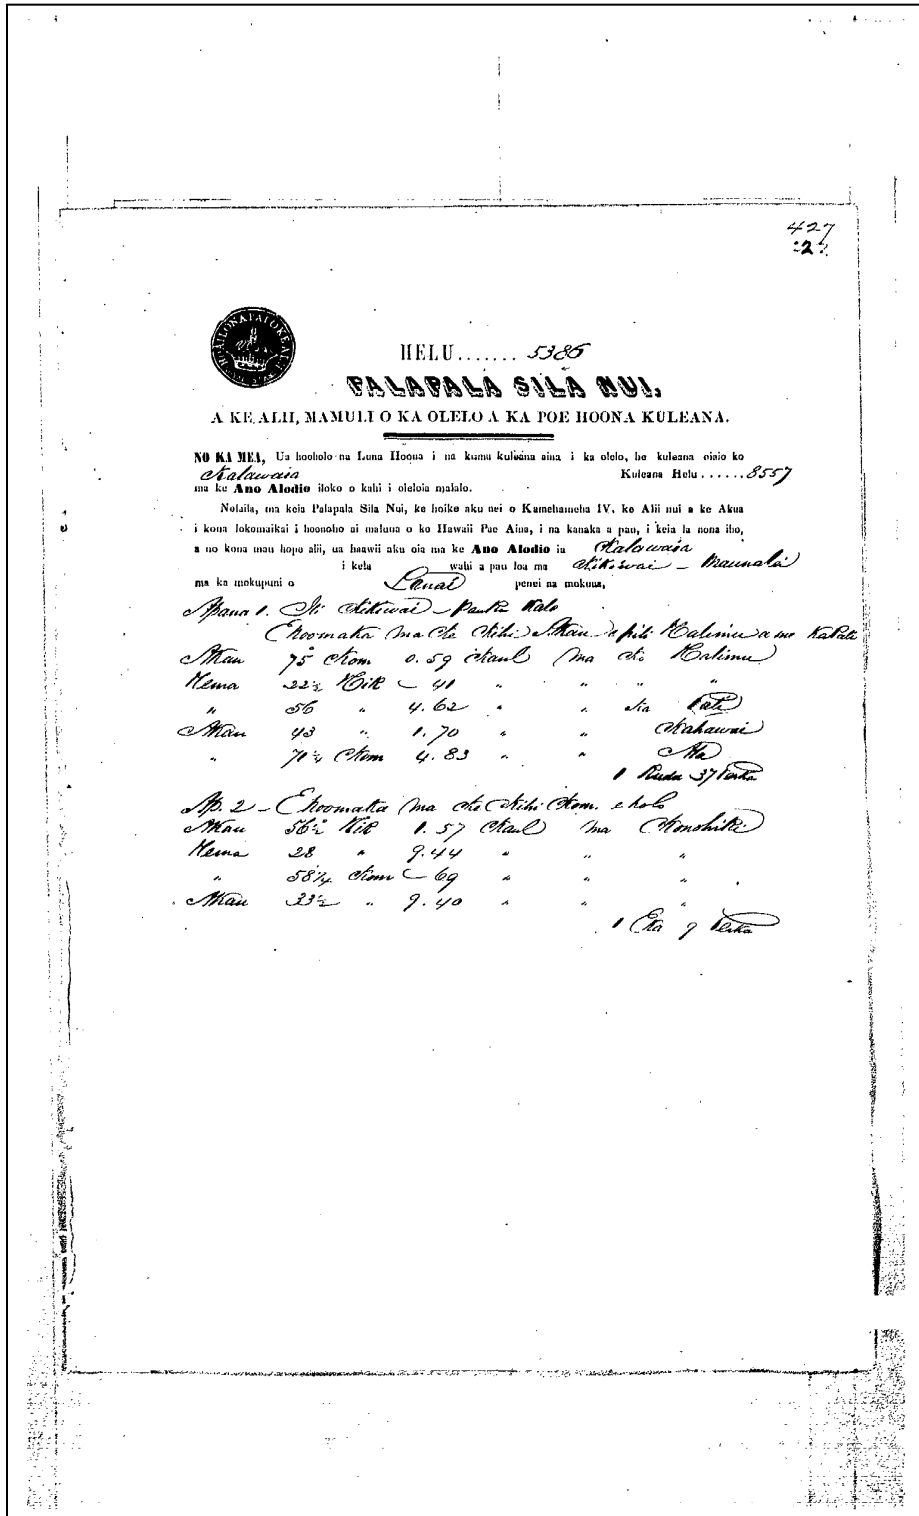 427
HELU....... 5386
PALAPALA SILA NUI,
A KE ALII, MAMULI O KA OLELO A KA POE HOONA KULEANA.
NO KA MEA, Ua hooholo na Luna Hoona i na kumu kuleana aina i ka olelo, he kuleana oiaio ko
Kalawaia Kuleana Helu......8557
ma ke Ano Alodio iloko o kahi i oleloia malalo.
Nolaila, ma keia Palapala Sila Nui, ke hoike aku nei o Kamehameha IV, ke Alii nui a ke Akua
i kona lokomaikai i hoonoho ai maluna o ko Hawaii Pae Aina, i na kanaka a pau, i keia la nona iho,
a no kona mau hope alii, ua haawii aku oia ma ke Ano Alodio ia Kalawaia
i kela wahi a pau loa ma Kikiwai - Maunalei
ma ka mokupuni o Lanai penei na mokuna,
Apana 1. Ili Kikiwai - Pauku Kalo
E hoomaka ma ke Kihi Akau e pili Kalimu a me Kapali
Akau 75° Kom 0.59 Kaul ma ko Kalimu
Hema 22½ Hik - 41 " " " "
" 56 " 4.62 " " ka Pali
Akau 43 " 1.70 " " Kahawai
" 70¼ Kom 4.83 " " Ala
1 Ruda 37 Perka
Ap. 2 - E hoomaka ma ke Kihi Kom. e holo
Akau 56½° Hik 1.57 Kaul ma Konohiki
Hema 28 " 9.44 " " "
" 58¼ Kom - 69 " " "
Akau 33½ " 9.40 " " "
1 Eka 9 Perka